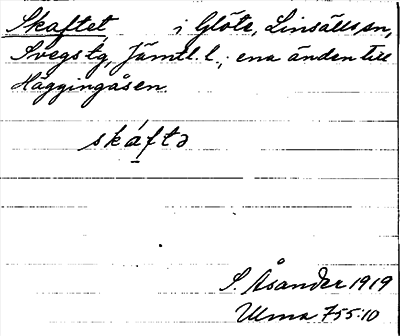 Skaftet i Glöte, Linsälls sn,
Svegs tg, Jämtl. l.; ena änden till
Häggingåsen.
skáftə
S. Åsander 1919
Ulma 755:10